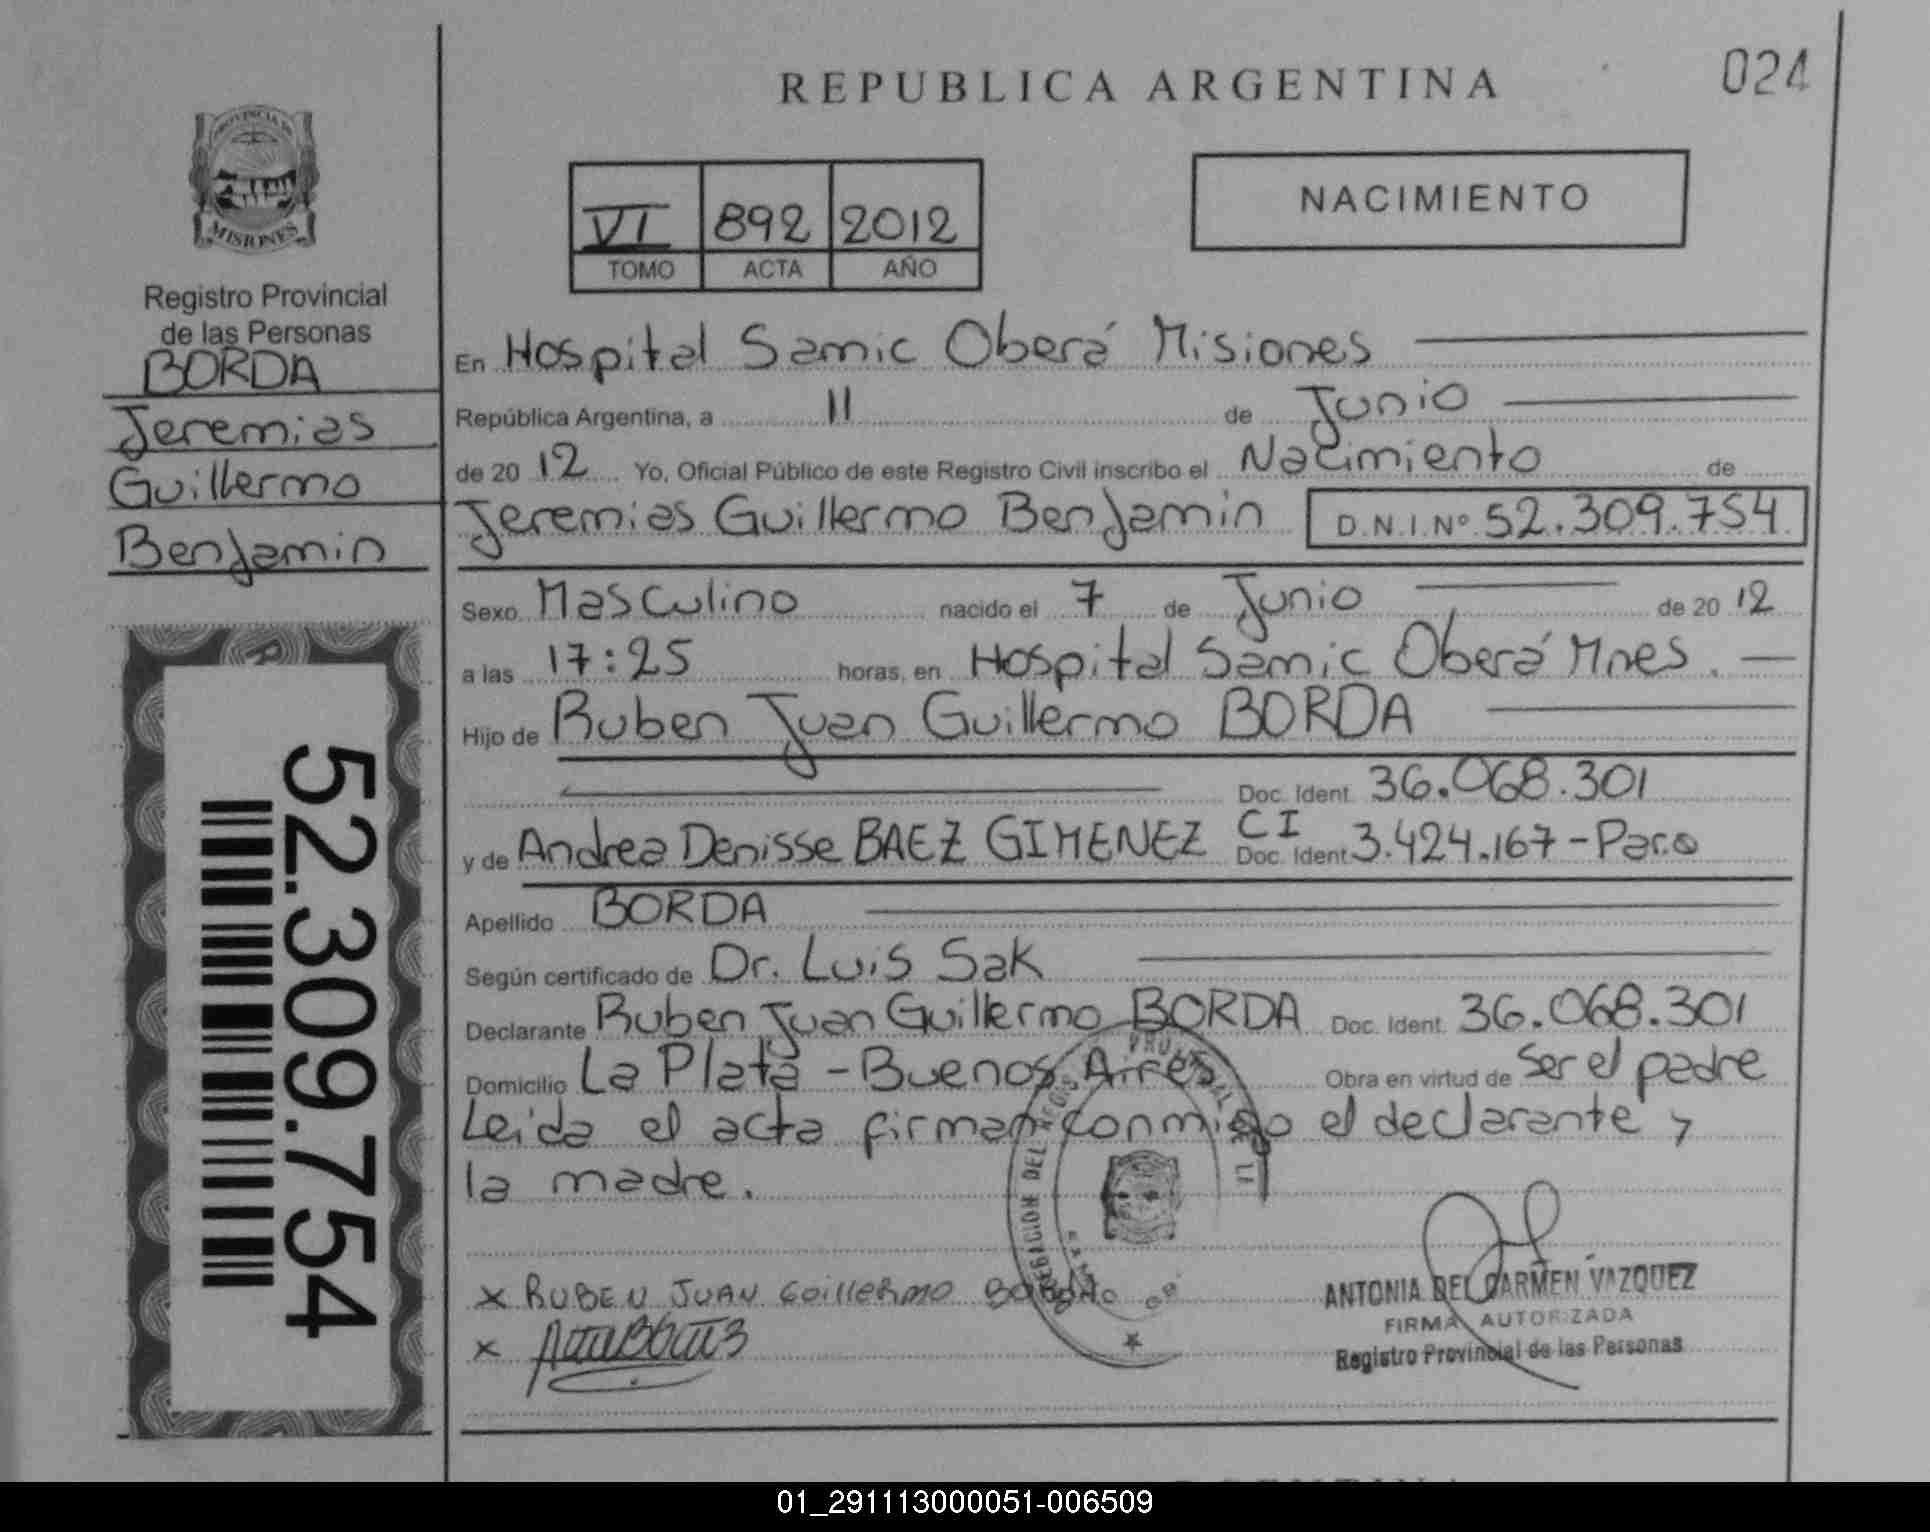 REPUBLICA ARGENTINA
024
PROVINCIA DE
MISIONES
Registro Provincial
de las Personas
BORDA
Jeremias
Guillermo
Benjamin
52.309.754
VI 892 2012
TOMO ACTA AÑO
NACIMIENTO
En Hospital Samic Oberá Misiones
República Argentina, a 11 de Junio
de 20 12 Yo, Oficial Público de este Registro Civil inscribo el Nacimiento de
Jeremias Guillermo Benjamin D.N.I.Nº 52.309.754
Sexo Masculino nacido el 7 de Junio de 20 12
a las 17:25 horas, en Hospital Samic Oberá Mnes.
Hijo de Ruben Juan Guillermo BORDA
Doc. Ident. 36.068.301
y de Andrea Denisse BAEZ GIMENEZ CI Doc. Ident 3.424.167-Par.
Apellido BORDA
Según certificado de Dr. Luis Sak
Declarante Ruben Juan Guillermo BORDA Doc. Ident. 36.068.301
Domicilio La Plata - Buenos Aires Obra en virtud de Ser el padre
Leida el acta firman conmigo el declarante y
la madre.
x RUBEN JUAN Goillermo BORDA
x
ANTONIA DEL CARMEN VAZQUEZ
FIRMA AUTORIZADA
Registro Provincial de las Personas
01_291113000051-006509